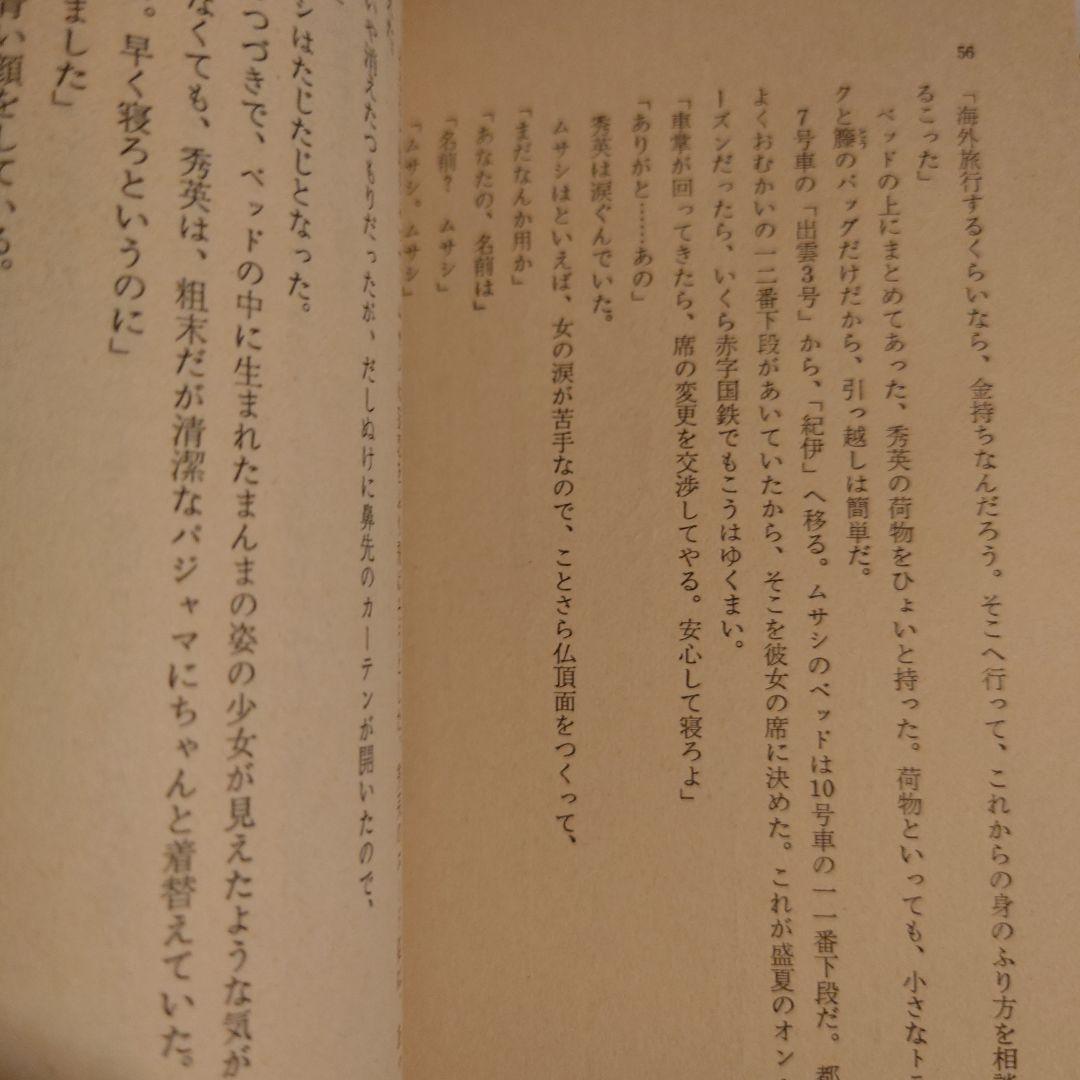 56
「海外旅行するくらいなら、金持ちなんだろう。そこへ行って、これからの身のふり方を相談
るこった」
ベッドの上にまとめてあった、秀英の荷物をひょいと持った。荷物といっても、小さなトラ
クと籐のバッグだけだから、引っ越しは簡単だ。
7号車の「出雲3号」から、「紀伊」へ移る。ムサシのベッドは10号車の一一番下段だ。都
よくおむかいの一二番下段があいていたから、そこを彼女の席に決めた。これが盛夏のオン・
ーズンだったら、いくら赤字国鉄でもこうはゆくまい。
「車掌が回ってきたら、席の変更を交渉してやる。安心して寝ろよ」
「ありがと……あの」
秀英は涙ぐんでいた。
ムサシはといえば、女の涙が苦手なので、ことさら仏頂面をつくって、
「まだなんか用か」
「あなたの、名前は」
「名前？　ムサシ」
「ムサシ。ムサシ」
消えたつもりだったが、だしぬけに鼻先のカーテンが開いたので、
シはたじたじとなった。
つづきで、ベッドの中に生まれたまんまの姿の少女が見えたような気が
なくても、秀英は、粗末だが清潔なパジャマにちゃんと着替えていた。
。早く寝ろというのに」
ました」
い顔をしている。